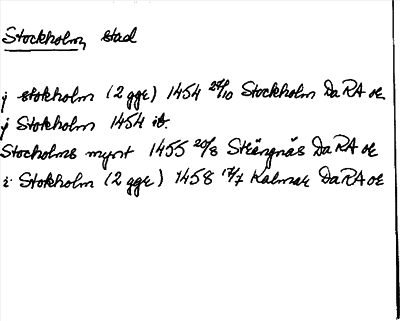 Stockholm, stad
j stokholm (2 ggr) 1454 24/10 Stockholm DaRA or
j Stokholm 1454 ib.
Stocholms mynt 1455 20/8 Strängnäs DaRA or
i Stokholm (2 ggr) 1458 17/7 Kalmar DaRA or